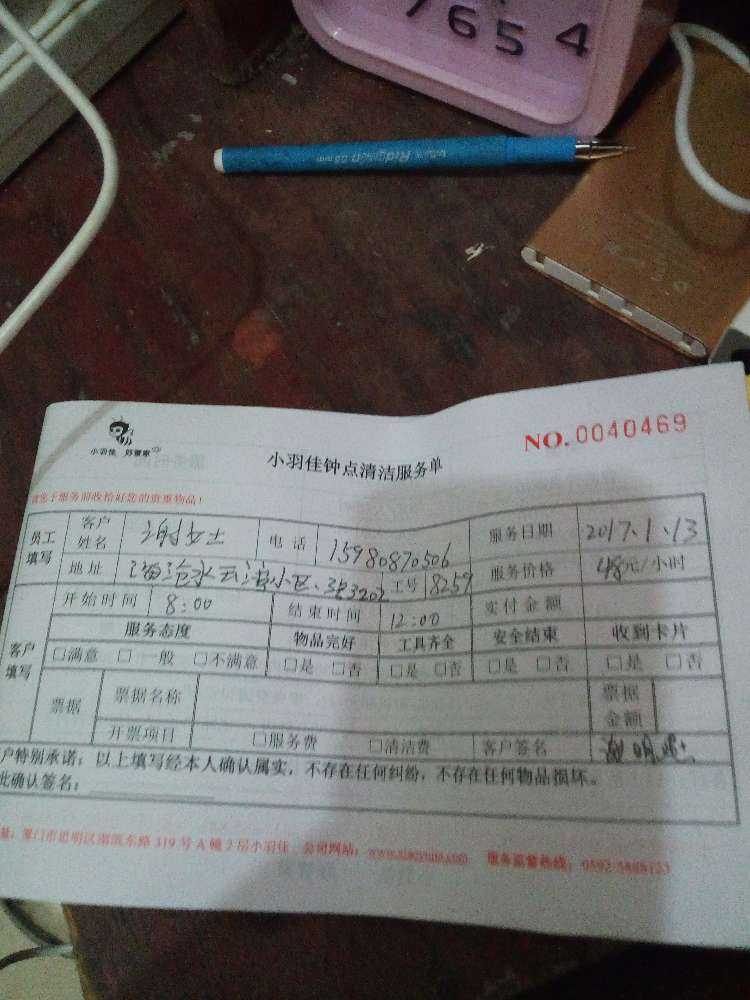 7 6 5 4
Ridgelson 0.5 mm
小羽佳 好管家
小羽佳钟点清洁服务单
NO. 0040469
请您于服务前收拾好您的贵重物品!
员工填写 客户姓名 谢女士 电话 15980870506 服务日期 2017.1.13
地址 海沧水云湾小区 3202 工号 8259 服务价格 48元/小时
开始时间 8:00 结束时间 12:00 实付金额
客户填写 服务态度 物品完好 工具齐全 安全结束 收到卡片
□满意 □一般 □不满意 □是 □否 □是 □否 □是 □否 □是 □否
票据 票据名称 票据金额
开票项目 □服务费 □清洁费 客户签名 谢
户特别承诺:以上填写经本人确认属实,不存在任何纠纷,不存在任何物品损坏。
此确认签名:
厦门市思明区湖滨东路 319 号 A 幢 2 层小羽佳 公司网站: 服务监督热线:0592-5888123